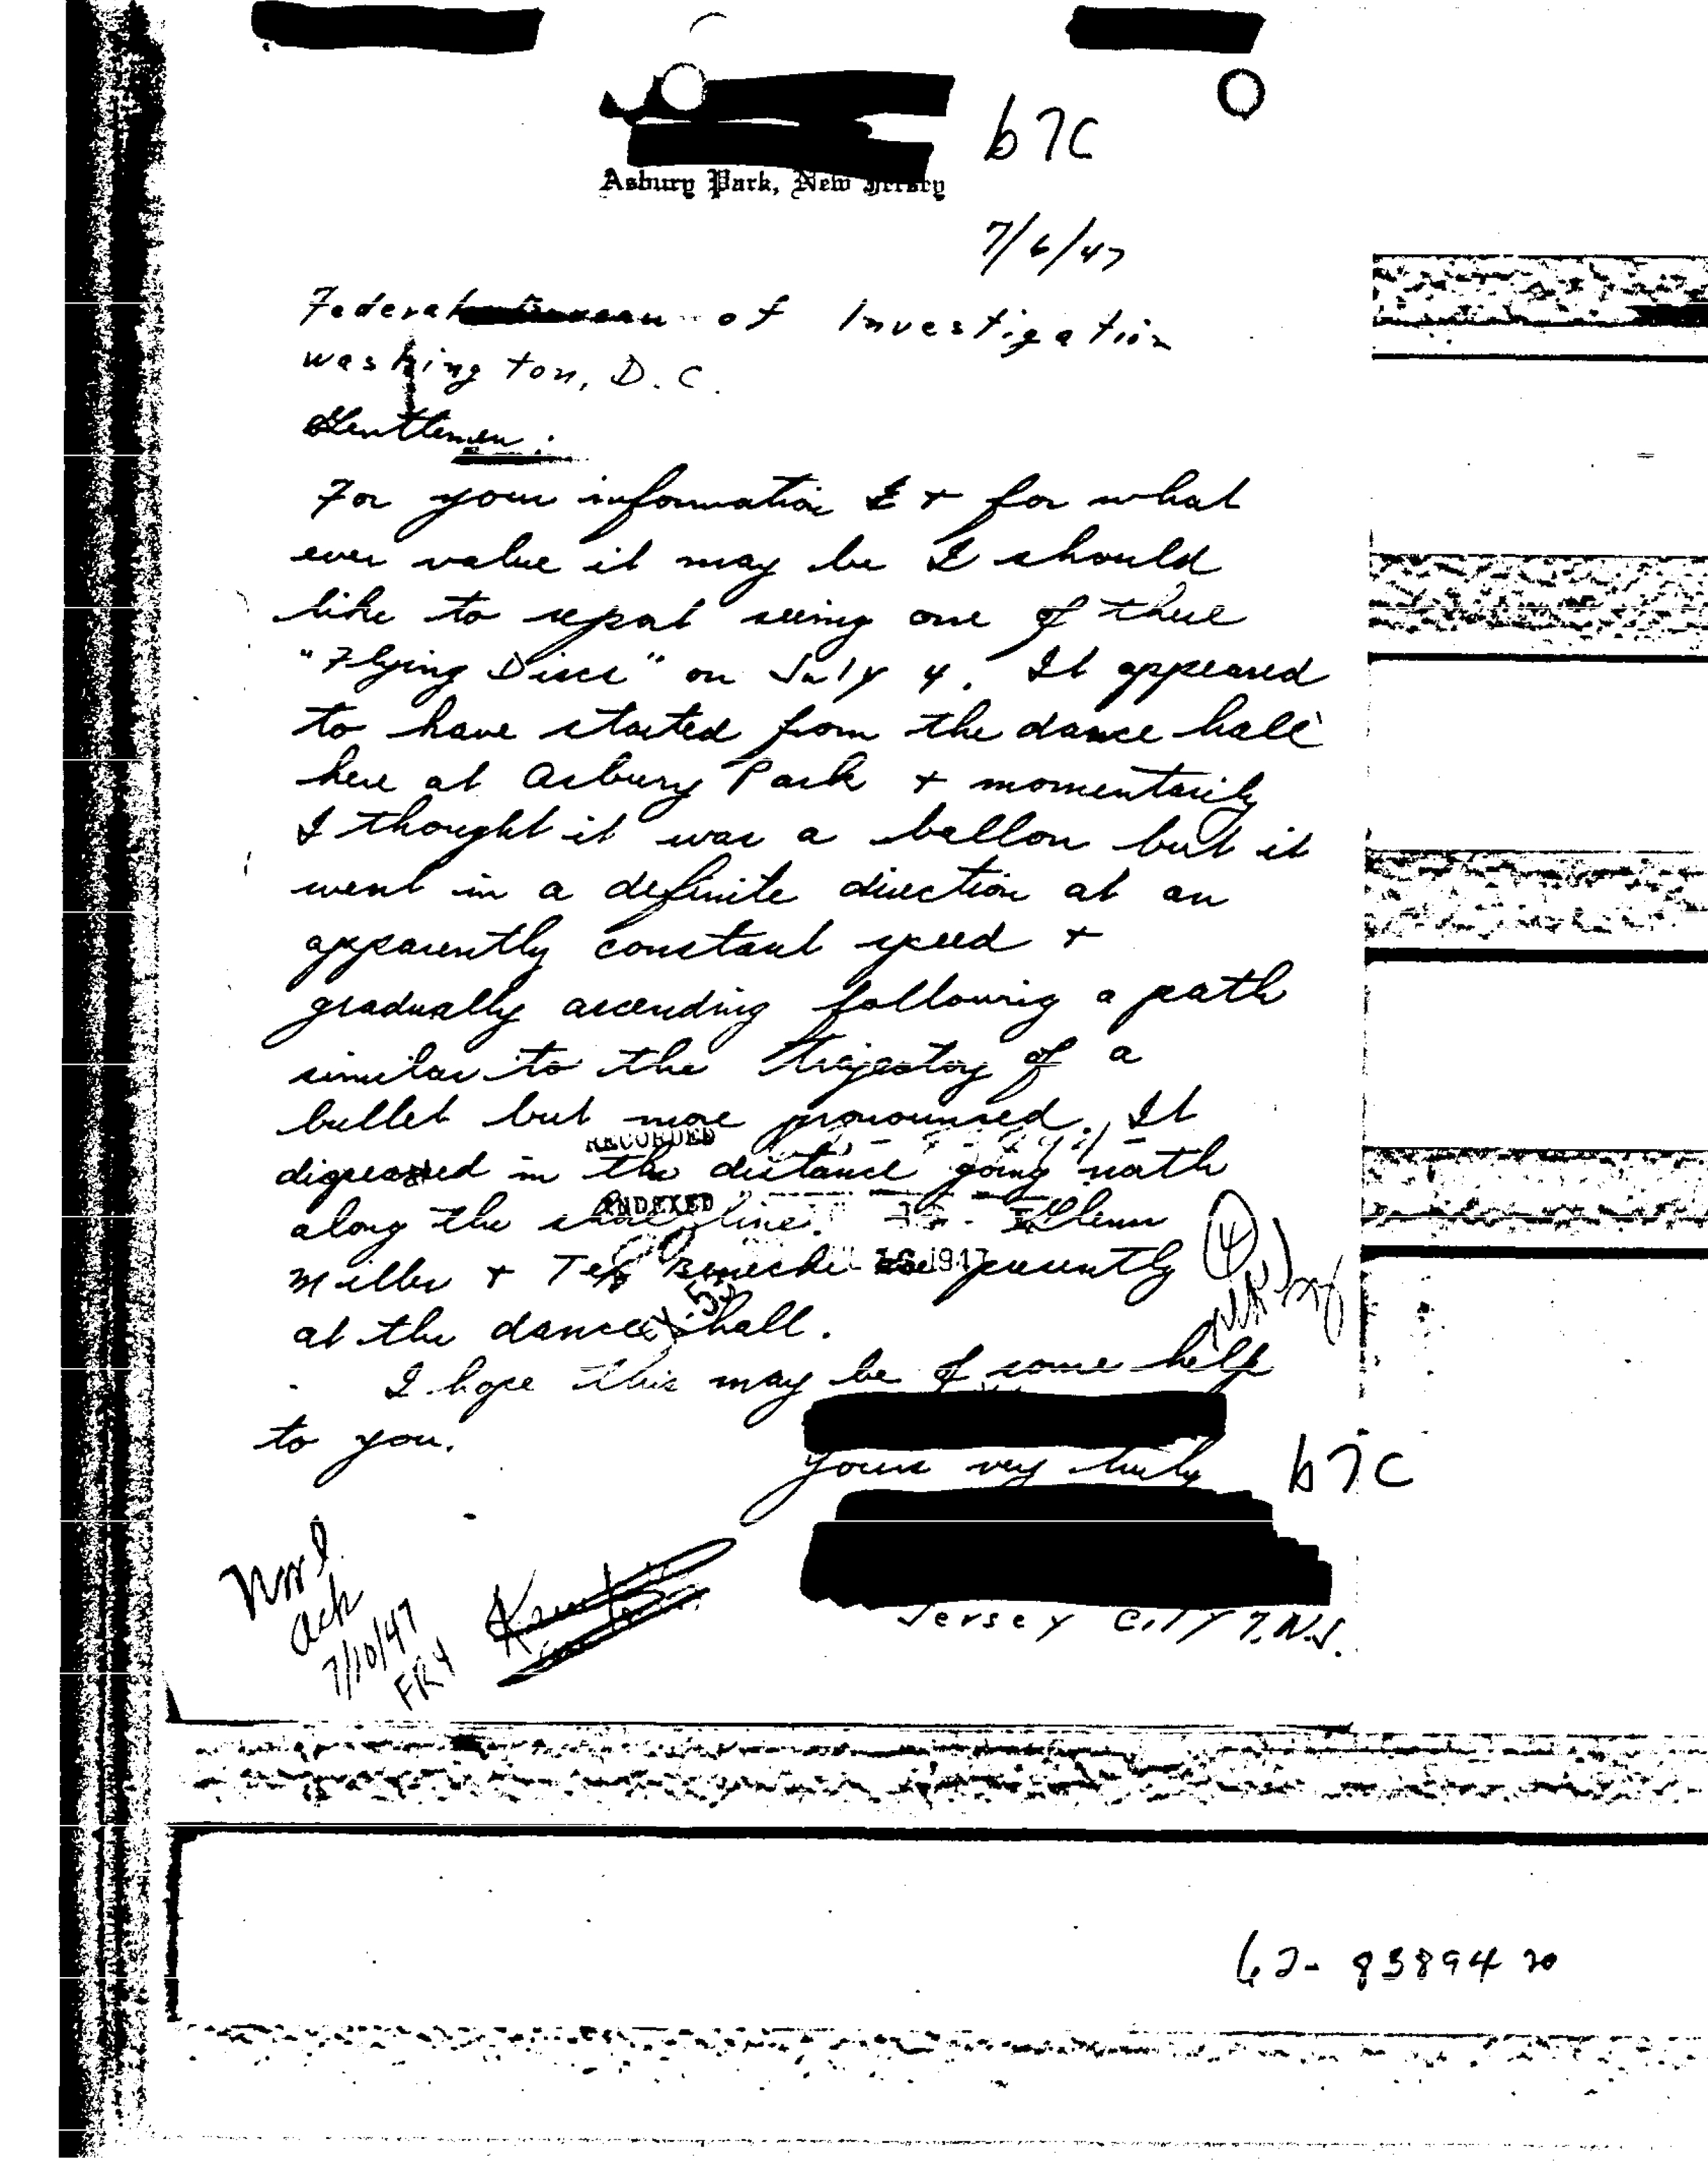 b7C
Asbury Park, New Jersey
7/6/47
Federal Bureau of Investigation
Washington, D.C.
Gentlemen:
For your information & + for what
ever value it may be I should
like to repot seeing one of these
"Flying Discs" on July 4. It appeared
to have started from the dance hall
here at Asbury Park + momentarily
I thought it was a ballon but it
went in a definite direction at an
apparently constant speed +
gradually ascending following a path
similar to the trajectoy of a
bullet but more pronounced. It
RECORDED
disgressed in the distance going north
INDEXED
along the shore line. Glenn
Miller + Tex Benecke are presently
1947
at the dance hall.
I hope this may be of some help
to you.
Yours very truly
b7C
Jersey City 7, N.J.
ack
7/10/47
62-83894 20